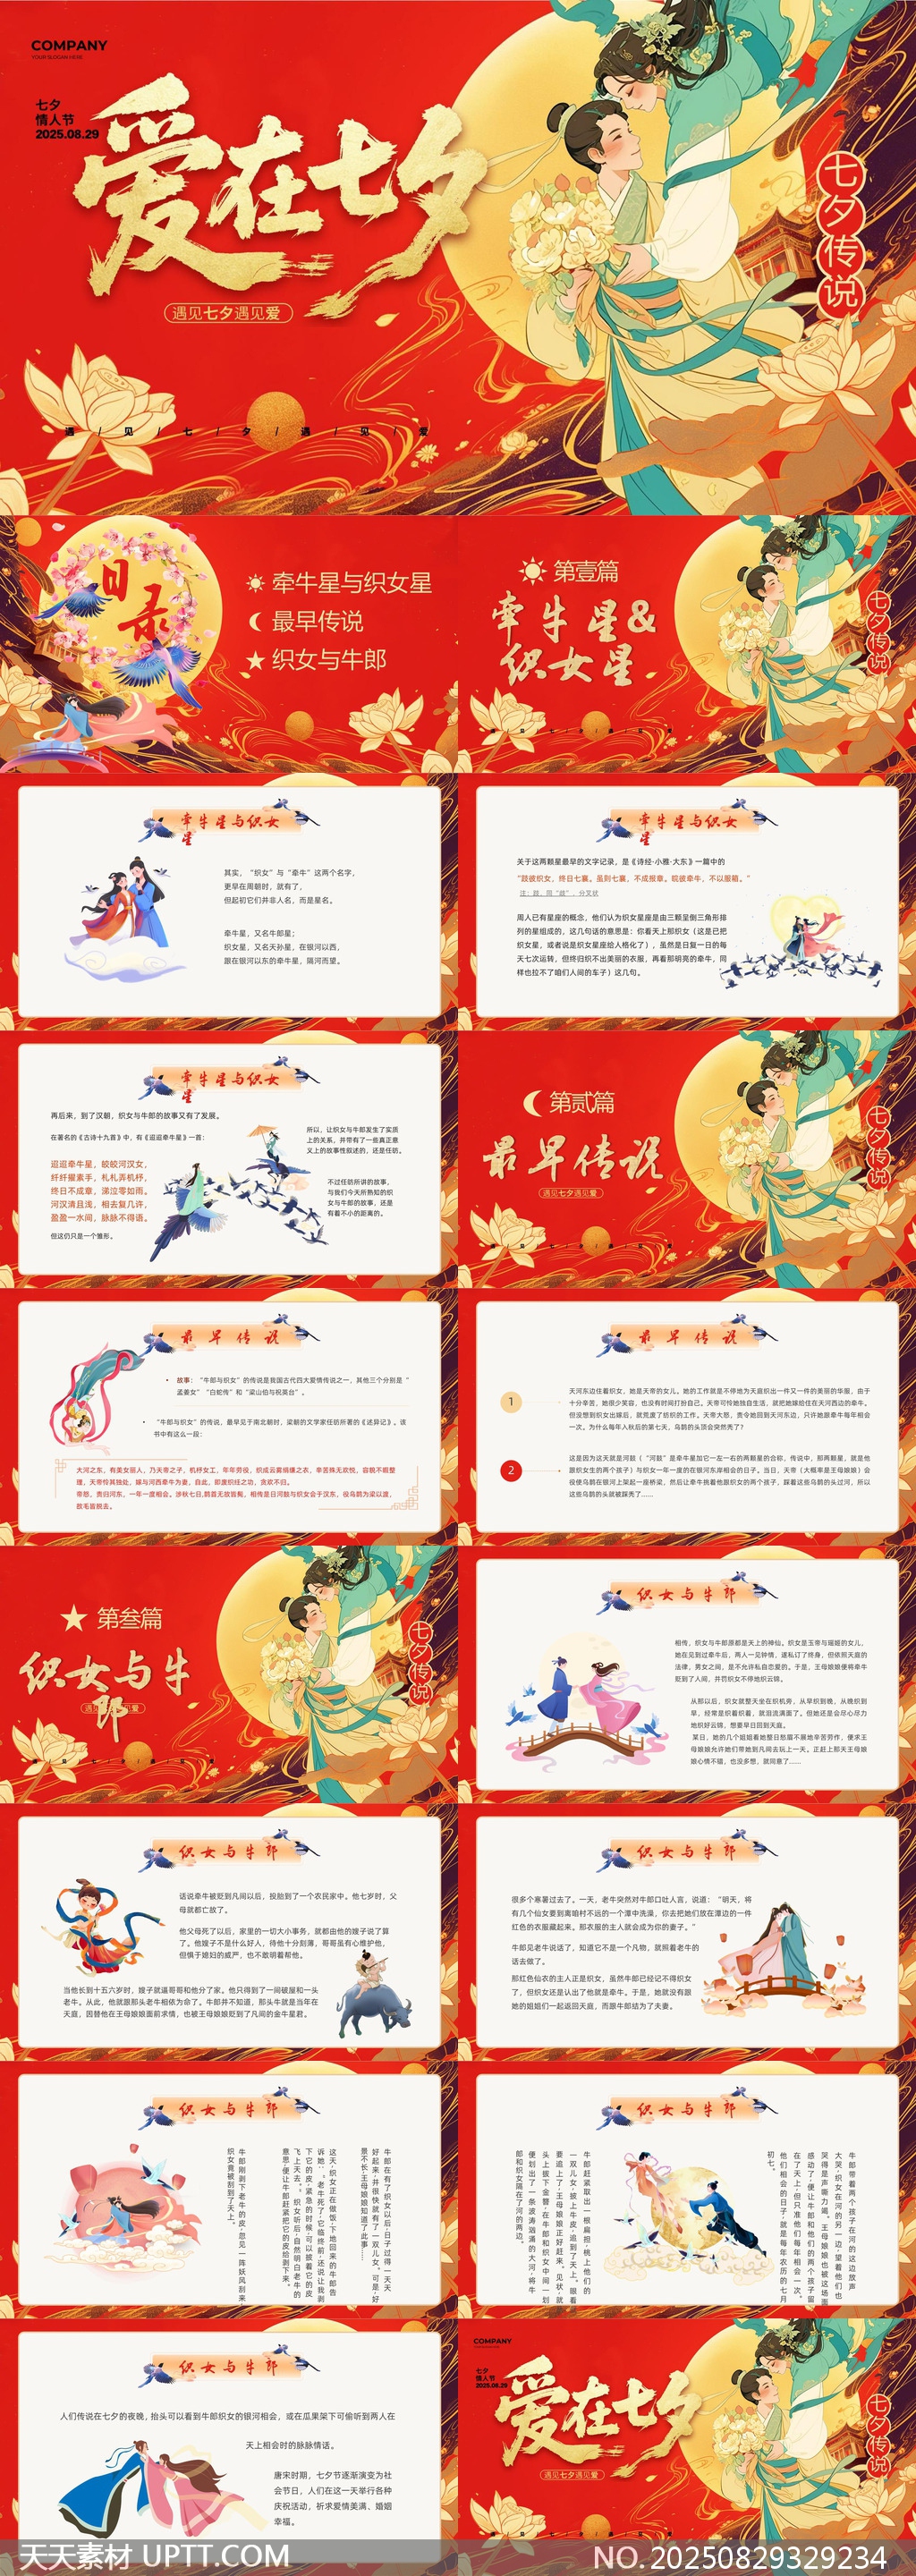 COMPANY
YOUR SLOGAN HERE
七夕
情人节
2025.08.29
爱在七夕
遇见七夕遇见爱
七夕传说
遇 / 见 / 七 / 夕 / 遇 / 见 / 爱
目录
牵牛星与织女星
最早传说
织女与牛郎
第壹篇
牵牛星&
织女星
七夕传说
牵牛星与织女
星
其实，“织女”与“牵牛”这两个名字，
更早在周朝时，就有了，
但起初它们并非人名，而是星名。
牵牛星，又名牛郎星；
织女星，又名天孙星，在银河以西，
跟在银河以东的牵牛星，隔河而望。
牵牛星与织女
星
关于这两颗星最早的文字记录，是《诗经·小雅·大东》一篇中的
“跂彼织女，终日七襄。虽则七襄，不成报章。睆彼牵牛，不以服箱。”
注：跂，同“歧”，分叉状
周人已有星座的概念，他们认为织女星座是由三颗呈倒三角形排
列的星组成的，这几句话的意思是：你看天上那织女（这是已把
织女星，或者说是织女星座给人格化了），虽然是日复一日的每
天七次运转，但终归织不出美丽的衣服，再看那明亮的牵牛，同
样也拉不了咱们人间的车子）这几句。
牵牛星与织女
星
再后来，到了汉朝，织女与牛郎的故事又有了发展。
在著名的《古诗十九首》中，有《迢迢牵牛星》一首：
迢迢牵牛星，皎皎河汉女，
纤纤擢素手，札札弄机杼，
终日不成章，涕泣零如雨。
河汉清且浅，相去复几许，
盈盈一水间，脉脉不得语。
但这仍只是一个雏形。
所以，让织女与牛郎发生了实质
上的关系，并带有了一些真正意
义上的故事性叙述的，还是任昉。
不过任昉所讲的故事，
与我们今天所熟知的织
女与牛郎的故事，还是
有着不小的距离的。
第贰篇
最早传说
遇见七夕遇见爱
七夕传说
最早传说
故事： “牛郎与织女”的传说是我国古代四大爱情传说之一，其他三个分别是“
孟姜女”“白蛇传”和“梁山伯与祝英台”。
“牛郎与织女”的传说，最早见于南北朝时，梁朝的文学家任昉所著的《述异记》。该
书中有这么一段：
大河之东，有美女丽人，乃天帝之子，机杼女工，年年劳役，织成云雾绡缣之衣，辛苦殊无欢悦，容貌不暇整
理，天帝怜其独处，嫁与河西牵牛为妻，自此，即废织纴之功，贪欢不归。
帝怒，责归河东，一年一度相会。涉秋七日,鹊首无故皆髡，相传是日河鼓与织女会于汉东，役乌鹊为梁以渡，
故毛皆脱去。
最早传说
1
天河东边住着织女，她是天帝的女儿。她的工作就是不停地为天庭织出一件又一件的美丽的华服，由于
十分辛苦，她很少笑容，也没有时间打扮自己。天帝可怜她独自生活，就把她嫁给住在天河西边的牵牛。
但没想到织女出嫁后，就荒废了纺织的工作。天帝大怒，责令她回到天河东边，只许她跟牵牛每年相会
一次。为什么每年入秋后的第七天，乌鹊的头顶会突然秃了？
2
这是因为这天就是河鼓（“河鼓”是牵牛星加它一左一右的两颗星的合称，传说中，那两颗星，就是他
跟织女生的两个孩子）与织女一年一度的在银河东岸相会的日子。当日，天帝（大概率是王母娘娘）会
役使乌鹊在银河上架起一座桥梁，然后让牵牛挑着他跟织女的两个孩子，踩着这些乌鹊的头过河，所以
这些乌鹊的头就被踩秃了……
第叁篇
织女与牛
郎
遇见七夕遇见爱
七夕传说
织女与牛郎
相传，织女与牛郎原都是天上的神仙。织女是玉帝与瑶姬的女儿，
她在见到过牵牛后，两人一见钟情，遂私订了终身，但依照天庭的
法律，男女之间，是不允许私自恋爱的。于是，王母娘娘便将牵牛
贬到了人间，并罚织女不停地织云锦。
从那以后，织女就整天坐在织机旁，从早织到晚，从晚织到
早，经常是织着织着，就泪流满面了。但她还是会尽心尽力
地织好云锦，想要早日回到天庭。
某日，她的几个姐姐看她整日愁眉不展地辛苦劳作，便求王
母娘娘允许她们带她到凡间去玩上一天。正赶上那天王母娘
娘心情不错，也没多想，就同意了……
织女与牛郎
话说牵牛被贬到凡间以后，投胎到了一个农民家中。他七岁时，父
母就都亡故了。
他父母死了以后，家里的一切大小事务，就都由他的嫂子说了算
了。他嫂子不是什么好人，待他十分刻薄，哥哥虽有心维护他，
但惧于媳妇的威严，也不敢明着帮他。
当他长到十五六岁时，嫂子就逼哥哥和他分了家。他只得到了一间破屋和一头
老牛。从此，他就跟那头老牛相依为命了。牛郎并不知道，那头牛就是当年在
天庭，因替他在王母娘娘面前求情，也被王母娘娘贬到了凡间的金牛星君。
织女与牛郎
很多个寒暑过去了。一天，老牛突然对牛郎口吐人言，说道：“明天，将
有几个仙女要到离咱村不远的一个潭中洗澡，你去把她们放在潭边的一件
红色的衣服藏起来。那衣服的主人就会成为你的妻子。”
牛郎见老牛说话了，知道它不是一个凡物，就照着老牛的
话去做了。
那红色仙衣的主人正是织女，虽然牛郎已经记不得织女
了，但织女还是认出了他就是牵牛。于是，她就没有跟
她的姐姐们一起返回天庭，而跟牛郎结为了夫妻。
织女与牛郎
牛郎在有了织女以后，日子过得一天天
好起来，并很快就有了一双儿女。可是，好
景不长，王母娘娘知道了此事……
这天，织女正在做饭，下地回来的牛郎告
诉她：“老牛死了，它临终前，还说让我剥
下它的皮，紧急的时候，可以披着它的皮
飞上天去。”织女听后，自然明白老牛的
意思，便让牛郎赶紧把它的皮给剥下来。
牛郎刚剥下老牛的皮，忽见一阵妖风刮来，
织女竟被刮到了天上。
织女与牛郎
牛郎带着两个孩子在河的这边放声
大哭，织女在河的另一边，望着他们也
哭得是声嘶力竭。王母娘娘也被这场面
感动了，便让牛郎和他们的两个孩子留
在了天上，但只准他们每年相会一次。
他们相会的日子，就是每年农历的七月
初七。
牛郎赶紧取出一根扁担，挑上他们的
一双儿女，披上牛皮，追到了天上。眼看
要追上了，王母娘娘正好赶来。见状，就
头上拔下金簪，在牛郎和织女中间一划，
便划出了一条波涛汹涌的大河，将牛
郎和织女隔在了河的两边。
织女与牛郎
人们传说在七夕的夜晚, 抬头可以看到牛郎织女的银河相会，或在瓜果架下可偷听到两人在
天上相会时的脉脉情话。
唐宋时期，七夕节逐渐演变为社
会节日，人们在这一天举行各种
庆祝活动，祈求爱情美满、婚姻
幸福。
COMPANY
七夕
情人节
2025.08.29
爱在七夕
遇见七夕遇见爱
七夕传说
天天素材 UPTT.COM
NO.20250829329234